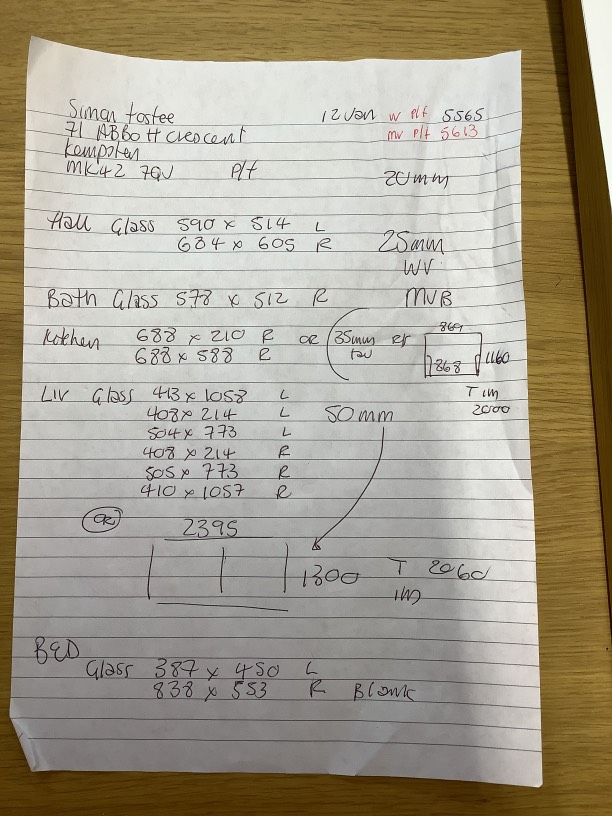 Simon Fostee 12 Jan w p/f 5565
71 ABBott crescent mv p/f 5613
Kempsten
MK42 7QU P/f 20mm
Hall Glass 590 x 514 L
684 x 605 R 25mm
WV
Bath Glass 578 x 512 R MVB
Kitchen 688 x 210 R OR 35mm
688 x 588 R
869
868 1160
T 1m
2000
Liv Glass 413 x 1058 L
408 x 214 L 50mm
504 x 773 L
408 x 214 R
505 x 773 R
410 x 1057 R
OR 2395
1300 T 2060
1m
BED
Glass 387 x 450 L
838 x 553 R Blank